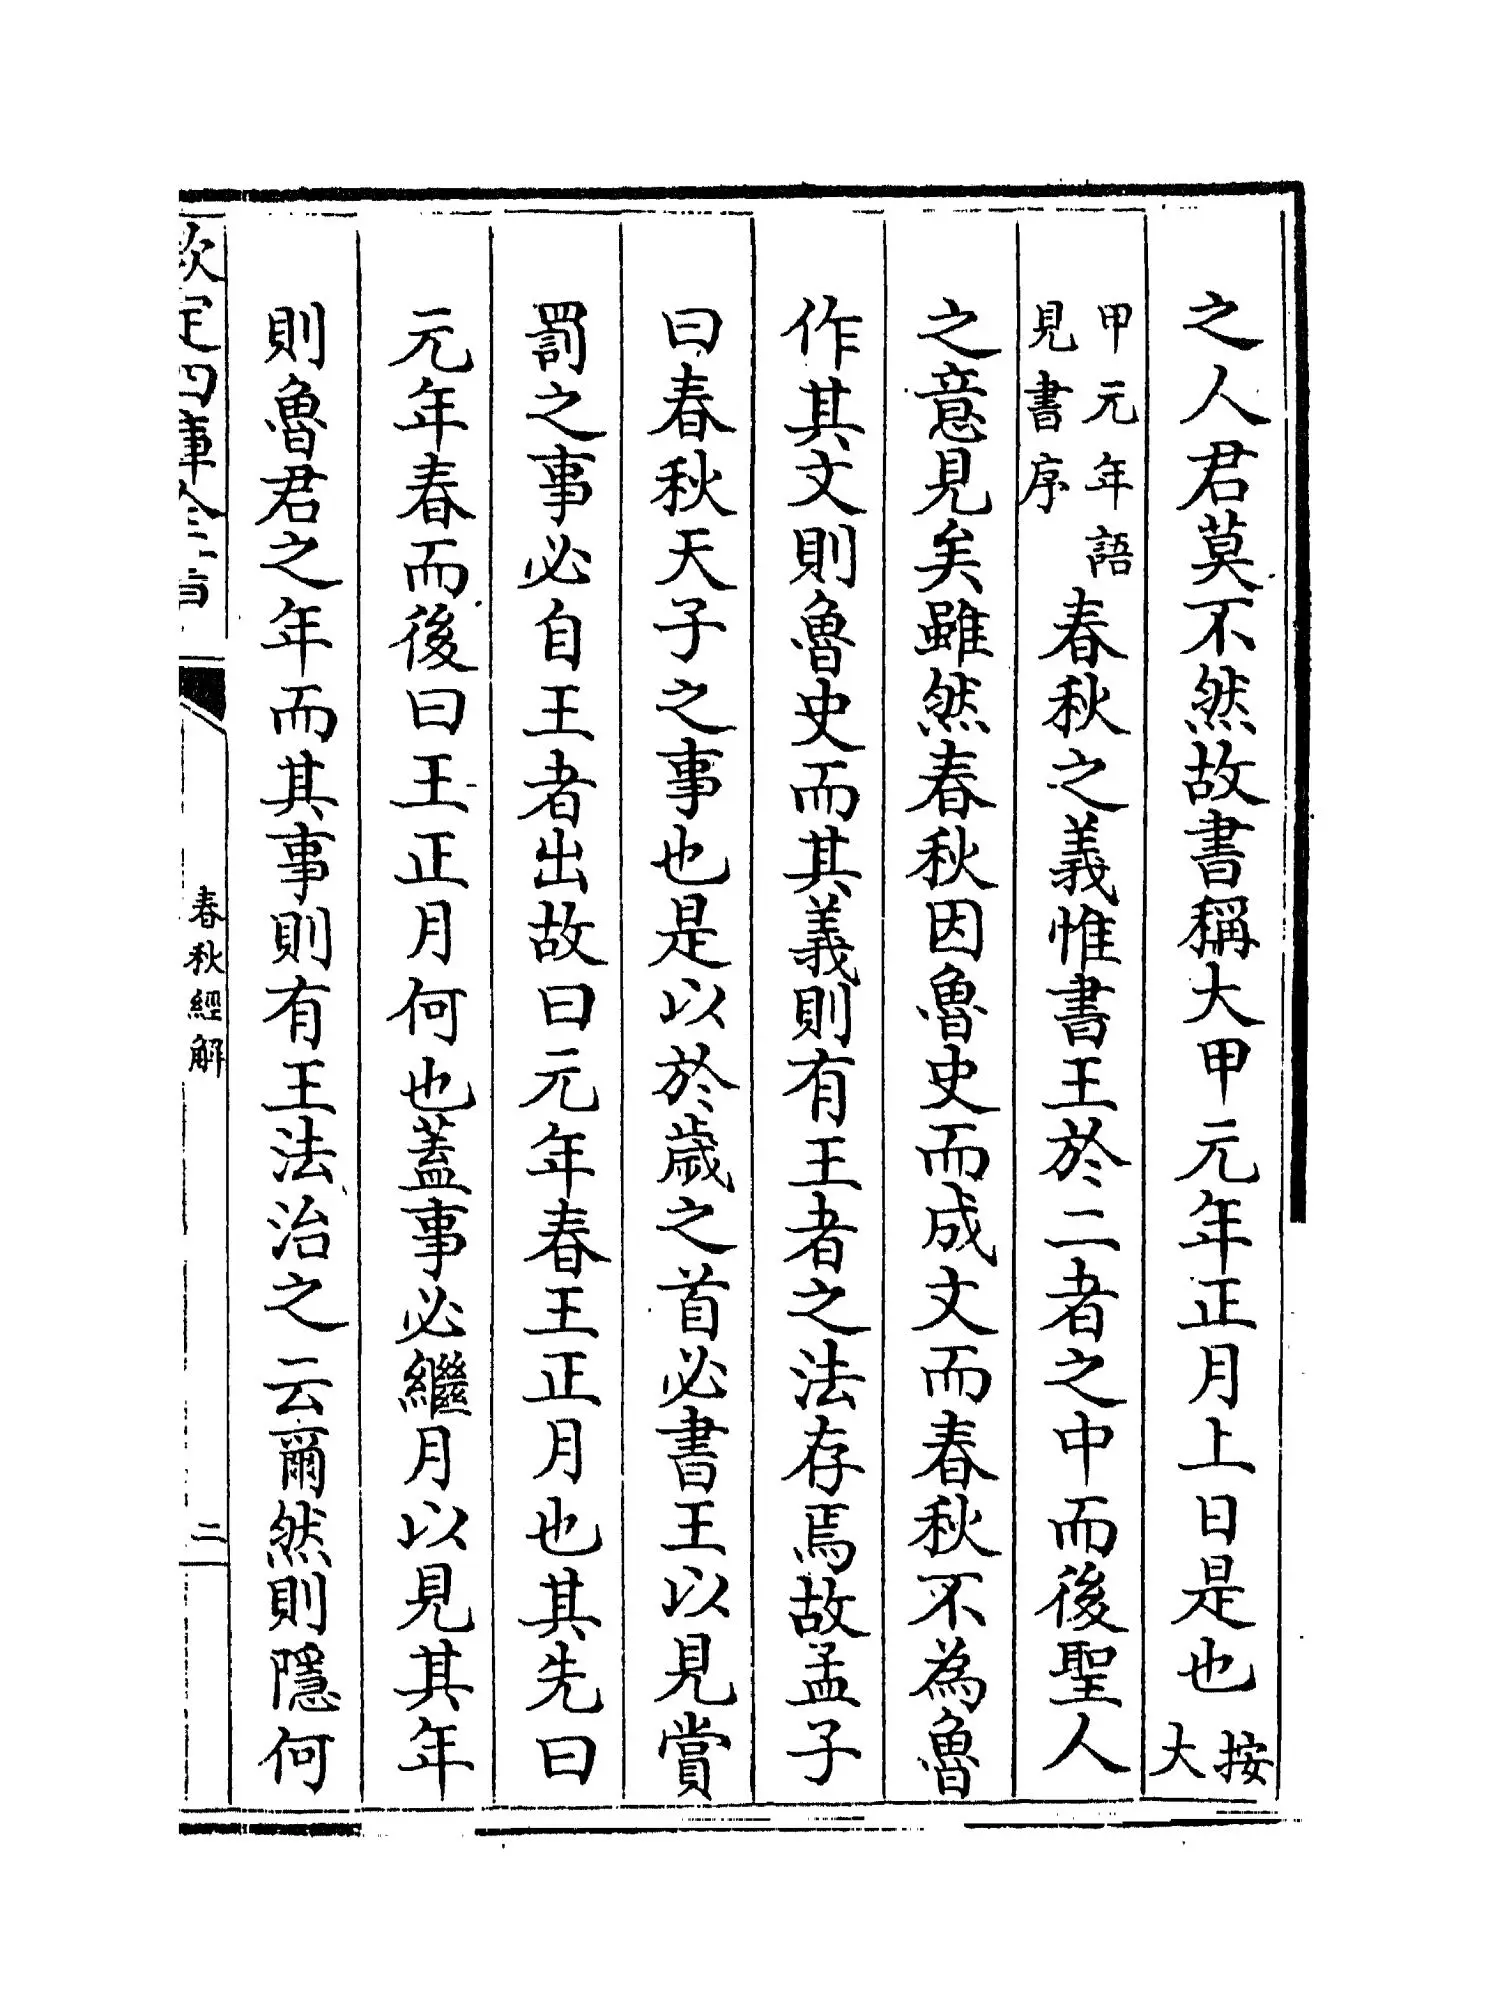 之人君莫不然故書稱大甲元年正月上日是也按大
甲元年語見書序春秋之義惟書王於二者之中而後聖人
之意見矣雖然春秋因魯史而成文而春秋不為魯
作其文則魯史而其義則有王者之法存焉故孟子
曰春秋天子之事也是以於歲之首必書王以見賞
罰之事必自王者出故曰元年春王正月也其先曰
元年春而後曰王正月何也蓋事必繼月以見其年
則魯君之年而其事則有王法治之云爾然則隱何
欽定四庫全書
春秋經解
二